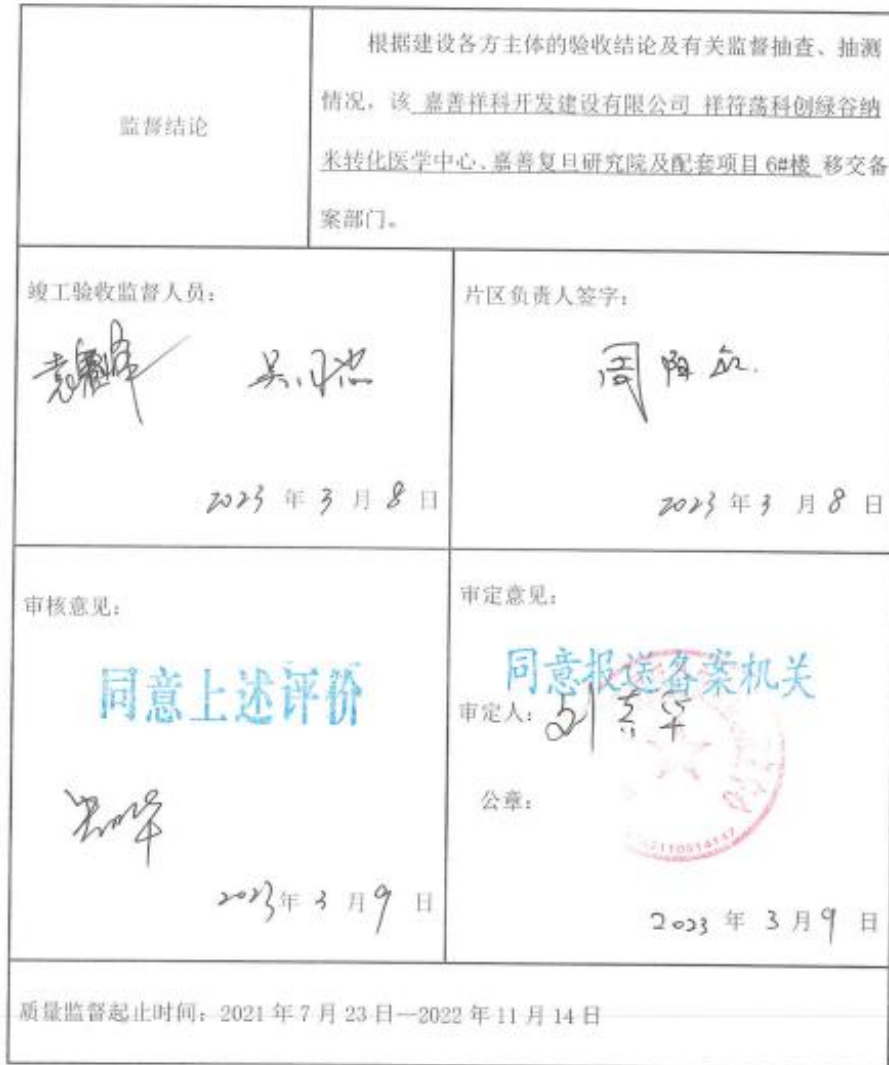 监督结论
根据建设各方主体的验收结论及有关监督抽查、抽测
情况，该 嘉善祥科开发建设有限公司 祥符荡科创绿谷纳
米转化医学中心、嘉善复旦研究院及配套项目 6#楼 移交备
案部门。
竣工验收监督人员：
2023 年 3 月 8 日
片区负责人签字：
周
2023 年 3 月 8 日
审核意见：
同意上述评价
2023年 3 月 9 日
审定意见：
同意报送备案机关
审定人：
公章：
2023 年 3月 9 日
质量监督起止时间：2021 年 7 月 23 日—2022 年 11 月 14 日